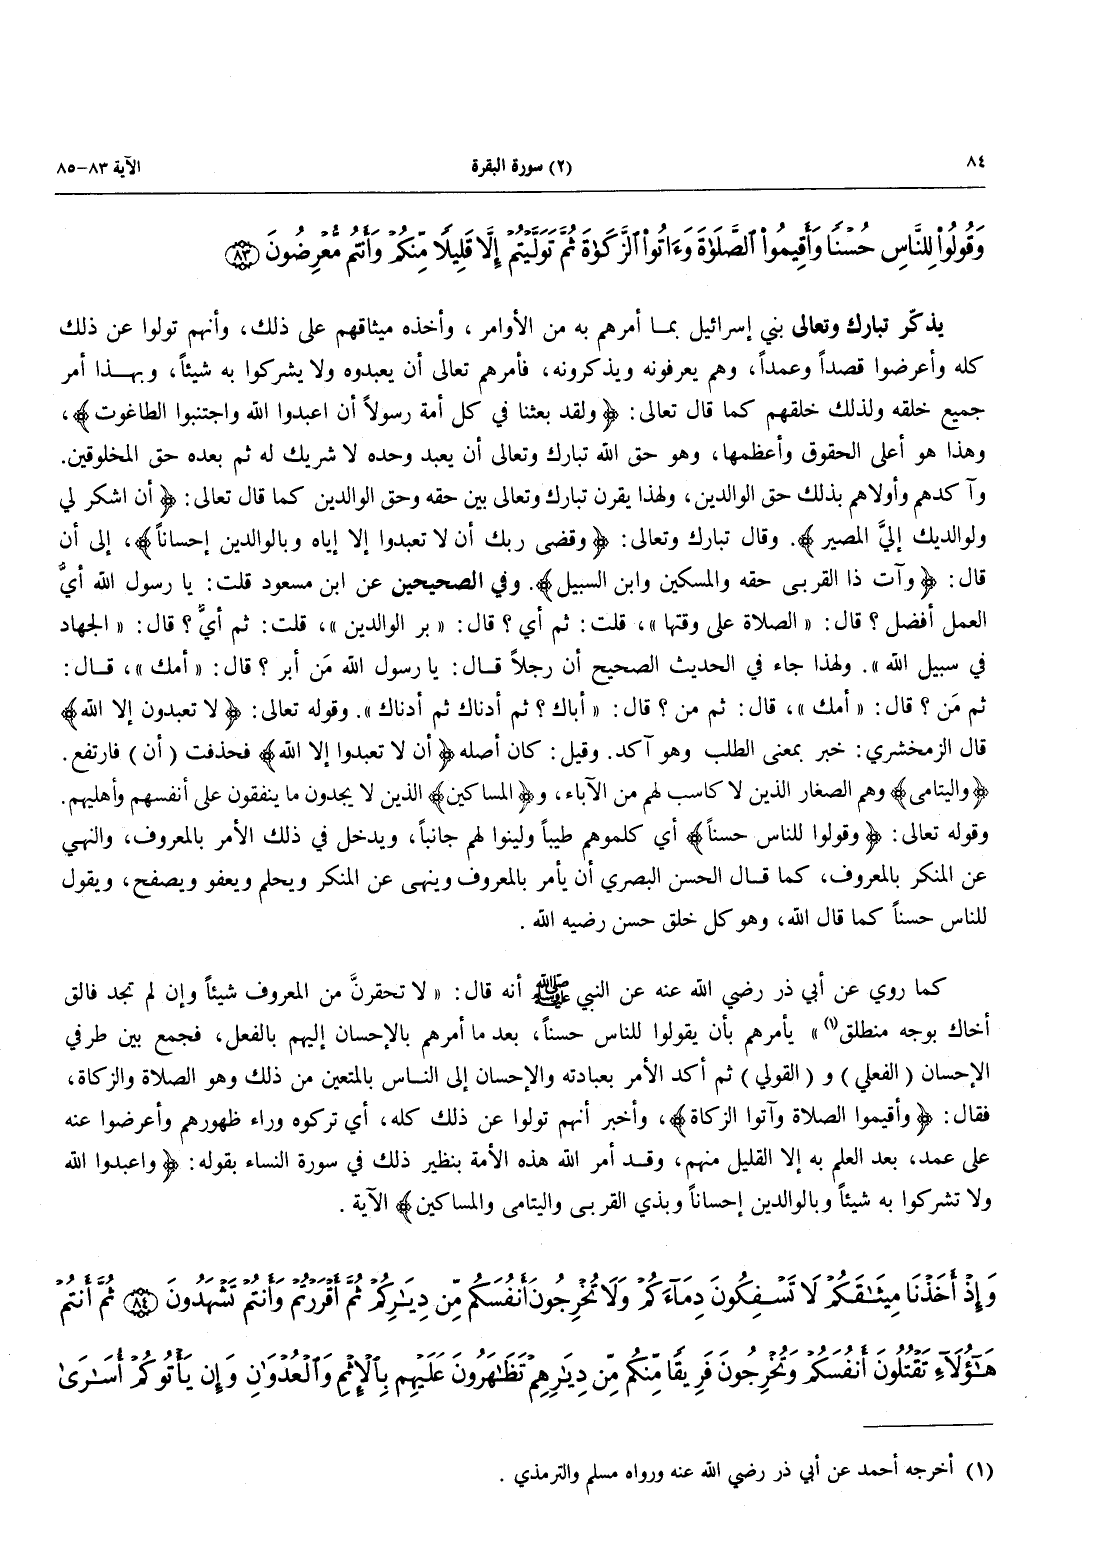 ٨٤
(٢) سورة البقرة
الآية ٨٣-٨٥
وَقُولُوا۟ لِلنَّاسِ حُسْنًا وَأَقِيمُوا۟ ٱلصَّلَوٰةَ وَءَاتُوا۟ ٱلزَّكَوٰةَ ثُمَّ تَوَلَّيْتُمْ إِلَّا قَلِيلًا مِّنكُمْ وَأَنتُم مُّعْرِضُونَ ٨٣
يذكّر تبارك وتعالى بني إسرائيل بما أمرهم به من الأوامر، وأخذه ميثاقهم على ذلك، وأنهم تولوا عن ذلك
كله وأعرضوا قصداً وعمداً، وهم يعرفونه ويذكرونه، فأمرهم تعالى أن يعبدوه ولا يشركوا به شيئاً، وبهذا أمر
جميع خلقه ولذلك خلقهم كما قال تعالى: ﴿ولقد بعثنا في كل أمة رسولاً أن اعبدوا الله واجتنبوا الطاغوت﴾،
وهذا هو أعلى الحقوق وأعظمها، وهو حق الله تبارك وتعالى أن يعبد وحده لا شريك له ثم بعده حق المخلوقين.
وآكدهم وأولاهم بذلك حق الوالدين، ولهذا يقرن تبارك وتعالى بين حقه وحق الوالدين كما قال تعالى: ﴿أن اشكر لي
ولوالديك إليَّ المصير﴾. وقال تبارك وتعالى: ﴿وقضى ربك أن لا تعبدوا إلا إياه وبالوالدين إحساناً﴾، إلى أن
قال: ﴿وآت ذا القربى حقه والمسكين وابن السبيل﴾. وفي الصحيحين عن ابن مسعود قلت: يا رسول الله أيُّ
العمل أفضل؟ قال: «الصلاة على وقتها»، قلت: ثم أي؟ قال: «بر الوالدين»، قلت: ثم أيُّ؟ قال: «الجهاد
في سبيل الله». ولهذا جاء في الحديث الصحيح أن رجلاً قال: يا رسول الله مَن أبر؟ قال: «أمك»، قال:
ثم مَن؟ قال: «أمك»، قال: ثم من؟ قال: «أباك؟ ثم أدناك ثم أدناك». وقوله تعالى: ﴿لا تعبدون إلا الله﴾
قال الزمخشري: خبر بمعنى الطلب وهو آكد. وقيل: كان أصله ﴿أن لا تعبدوا إلا الله﴾ فحذفت (أن) فارتفع.
﴿واليتامى﴾ وهم الصغار الذين لا كاسب لهم من الآباء، و﴿المساكين﴾ الذين لا يجدون ما ينفقون على أنفسهم وأهليهم.
وقوله تعالى: ﴿وقولوا للناس حسناً﴾ أي كلموهم طيباً ولينوا لهم جانباً، ويدخل في ذلك الأمر بالمعروف، والنهي
عن المنكر بالمعروف، كما قال الحسن البصري أن يأمر بالمعروف وينهى عن المنكر ويحلم ويعفو ويصفح، ويقول
للناس حسناً كما قال الله، وهو كل خلق حسن رضيه الله.
كما روي عن أبي ذر رضي الله عنه عن النبي ﷺ أنه قال: «لا تحقرنَّ من المعروف شيئاً وإن لم تجد فالق
أخاك بوجه منطلق(١)» يأمرهم بأن يقولوا للناس حسناً، بعد ما أمرهم بالإحسان إليهم بالفعل، فجمع بين طرفي
الإحسان (الفعلي) و (القولي) ثم أكد الأمر بعبادته والإحسان إلى الناس بالمتعين من ذلك وهو الصلاة والزكاة،
فقال: ﴿وأقيموا الصلاة وآتوا الزكاة﴾، وأخبر أنهم تولوا عن ذلك كله، أي تركوه وراء ظهورهم وأعرضوا عنه
على عمد، بعد العلم به إلا القليل منهم، وقد أمر الله هذه الأمة بنظير ذلك في سورة النساء بقوله: ﴿واعبدوا الله
ولا تشركوا به شيئاً وبالوالدين إحساناً وبذي القربى واليتامى والمساكين﴾ الآية.
وَإِذْ أَخَذْنَا مِيثَٰقَكُمْ لَا تَسْفِكُونَ دِمَآءَكُمْ وَلَا تُخْرِجُونَ أَنفُسَكُم مِّن دِيَٰرِكُمْ ثُمَّ أَقْرَرْتُمْ وَأَنتُمْ تَشْهَدُونَ ٨٤ ثُمَّ أَنتُمْ
هَٰٓؤُلَآءِ تَقْتُلُونَ أَنفُسَكُمْ وَتُخْرِجُونَ فَرِيقًا مِّنكُم مِّن دِيَٰرِهِمْ تَظَٰهَرُونَ عَلَيْهِم بِٱلْإِثْمِ وَٱلْعُدْوَٰنِ وَإِن يَأْتُوكُمْ أُسَٰرَىٰ
(١) أخرجه أحمد عن أبي ذر رضي الله عنه ورواه مسلم والترمذي.